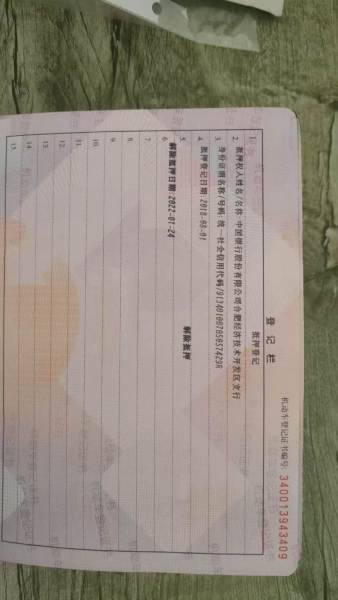 机动车登记证书编号: 340013943409
登记栏
抵押登记
1.
2. 抵押权人姓名/名称:中国银行股份有限公司合肥经济技术开发区支行
3. 身份证明名称/号码:统一社会信用代码/91340100705057429R
4. 抵押登记日期:2018-08-01
5. 解除抵押
6. 解除抵押日期:2022-01-24
7.
8.
9.
10.
11.
12.
13.
14.
15.